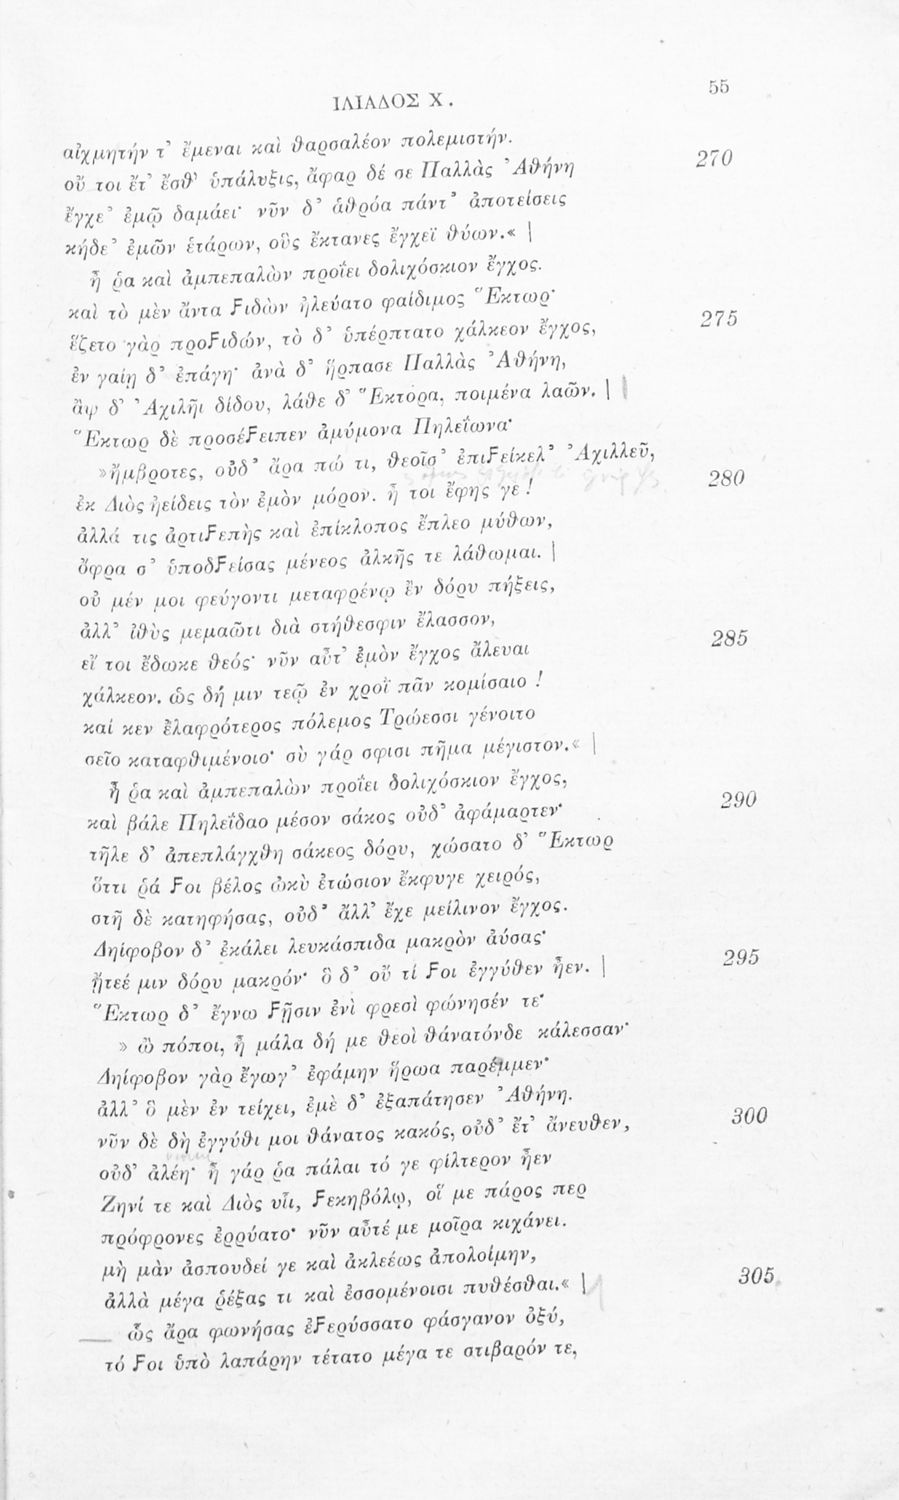 ΙΛΙΑΔΟΣ Χ.
55
αἰχμητήν τ’ ἔμεναι καὶ θαρσαλέον πολεμιστήν.
οὔ τοι ἔτ’ ἔσθ’ ὑπάλυξις, ἄφαρ δέ σε Παλλὰς Ἀθήνη 270
ἔγχε’ ἐμῷ δαμάει· νῦν δ’ ἁθρόα πάντ’ ἀποτείσεις
κήδε’ ἐμῶν ἑτάρων, οὓς ἔκτανες ἔγχεϊ θύων.« |
ἦ ῥα καὶ ἀμπεπαλὼν προΐει δολιχόσκιον ἔγχος.
καὶ τὸ μὲν ἄντα Ϝιδὼν ἠλεύατο φαίδιμος Ἕκτωρ·
ἕζετο γὰρ προϜιδών, τὸ δ’ ὑπέρπτατο χάλκεον ἔγχος, 275
ἐν γαίῃ δ’ ἐπάγη· ἀνὰ δ’ ἥρπασε Παλλὰς Ἀθήνη,
ἂψ δ’ Ἀχιλῆι δίδου, λάθε δ’ Ἕκτορα, ποιμένα λαῶν. |
Ἕκτωρ δὲ προσέϜειπεν ἀμύμονα Πηλεΐωνα·
»ἤμβροτες, οὐδ’ ἄρα πώ τι, θεοῖσ’ ἐπιϜείκελ’ Ἀχιλλεῦ,
ἐκ Διὸς ἠείδεις τὸν ἐμὸν μόρον. ἦ τοι ἔφης γε! 280
ἀλλά τις ἀρτιϜεπὴς καὶ ἐπίκλοπος ἔπλεο μύθων,
ὄφρα σ’ ὑποδϜείσας μένεος ἀλκῆς τε λάθωμαι. |
οὐ μέν μοι φεύγοντι μεταφρένῳ ἐν δόρυ πήξεις,
ἀλλ’ ἰθὺς μεμαῶτι διὰ στήθεσφιν ἔλασσον,
εἴ τοι ἔδωκε θεός· νῦν αὖτ’ ἐμὸν ἔγχος ἄλευαι 285
χάλκεον. ὡς δή μιν τεῷ ἐν χροῒ πᾶν κομίσαιο!
καί κεν ἐλαφρότερος πόλεμος Τρώεσσι γένοιτο
σεῖο καταφθιμένοιο· σὺ γάρ σφισι πῆμα μέγιστον.« |
ἦ ῥα καὶ ἀμπεπαλὼν προΐει δολιχόσκιον ἔγχος,
καὶ βάλε Πηλεΐδαο μέσον σάκος οὐδ’ ἀφάμαρτεν· 290
τῆλε δ’ ἀπεπλάγχθη σάκεος δόρυ, χώσατο δ’ Ἕκτωρ
ὅττι ῥά Ϝοι βέλος ὠκὺ ἐτώσιον ἔκφυγε χειρός,
στῆ δὲ κατηφήσας, οὐδ’ ἄλλ’ ἔχε μείλινον ἔγχος.
Δηίφοβον δ’ ἐκάλει λευκάσπιδα μακρὸν ἀύσας·
ᾔτεέ μιν δόρυ μακρόν· ὃ δ’ οὔ τί Ϝοι ἐγγύθεν ἦεν. | 295
Ἕκτωρ δ’ ἔγνω Ϝῇσιν ἐνὶ φρεσὶ φώνησέν τε·
»ὢ πόποι, ἦ μάλα δή με θεοὶ θάνατόνδε κάλεσσαν·
Δηίφοβον γὰρ ἔγωγ’ ἐφάμην ἥρωα παρέμμεν·
ἀλλ’ ὃ μὲν ἐν τείχει, ἐμὲ δ’ ἐξαπάτησεν Ἀθήνη.
νῦν δὲ δὴ ἐγγύθι μοι θάνατος κακός, οὐδ’ ἔτ’ ἄνευθεν, 300
οὐδ’ ἀλέη· ἦ γάρ ῥα πάλαι τό γε φίλτερον ἦεν
Ζηνί τε καὶ Διὸς υἷι, Ϝεκηβόλῳ, οἵ με πάρος περ
πρόφρονες ἐρρύατο· νῦν αὖτέ με μοῖρα κιχάνει.
μὴ μὰν ἀσπουδεί γε καὶ ἀκλεέως ἀπολοίμην,
ἀλλὰ μέγα ῥέξας τι καὶ ἐσσομένοισι πυθέσθαι.« | 305
ὣς ἄρα φωνήσας ἐϜερύσσατο φάσγανον ὀξύ,
τό Ϝοι ὑπὸ λαπάρην τέτατο μέγα τε στιβαρόν τε,